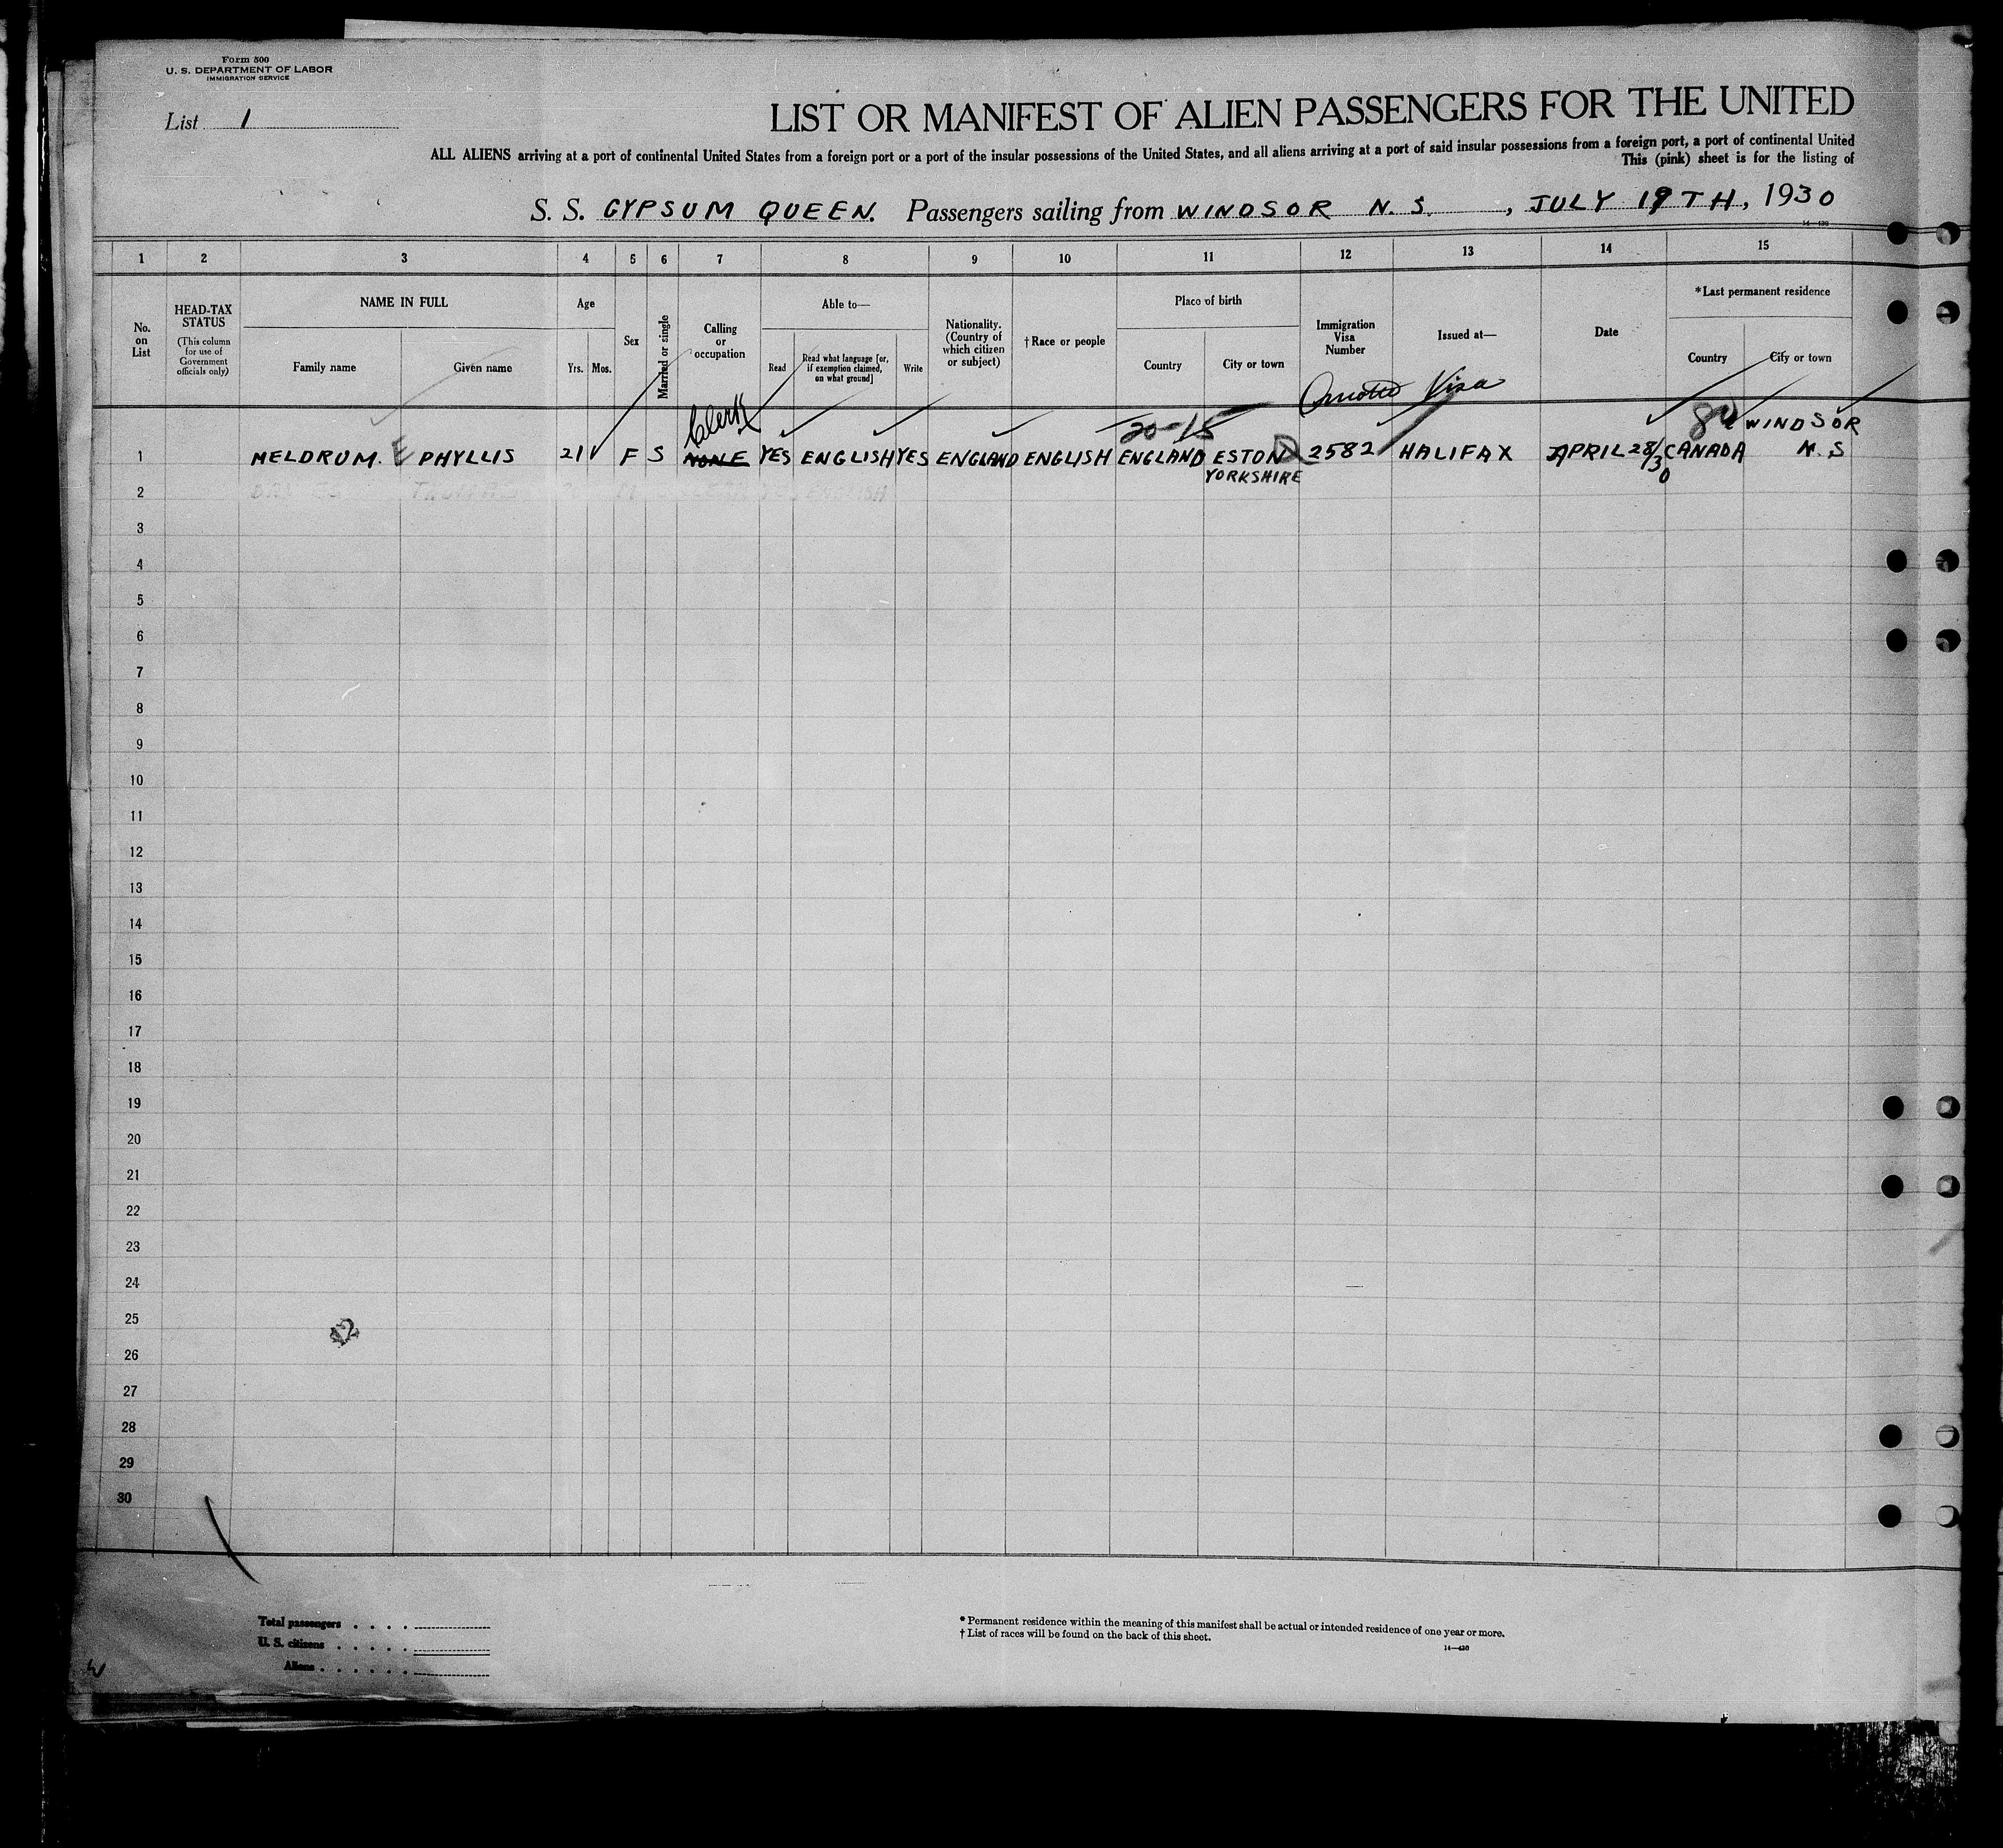 Form 500
U. S. DEPARTMENT OF LABOR
IMMIGRATION SERVICE
List 1
LIST OR MANIFEST OF ALIEN PASSENGERS FOR THE UNITED
ALL ALIENS arriving at a port of continental United States from a foreign port or a port of the insular possessions of the United States, and all aliens arriving at a port of said insular possessions from a foreign port, a port of continental United
This (pink) sheet is for the listing of
S. S. GYPSUM QUEEN. Passengers sailing from WINDSOR N. S., JULY 19TH, 1930
1 2 3 4 5 6 7 8 9 10 11 12 13 14 15
No. on List
HEAD-TAX STATUS
(This column for use of Government officials only)
NAME IN FULL
Family name Given name
Age
Yrs. Mos.
Sex
Married or single
Calling or occupation
Able to—
Read
Read what language [or, if exemption claimed, on what ground]
Write
Nationality. (Country of which citizen or subject)
†Race or people
Place of birth
Country City or town
Immigration Visa Number
Issued at—
Date
*Last permanent residence
Country City or town
Visa
Clerk 20-15 WINDSOR
1 MELDRUM. E PHYLLIS 21 F S NONE YES ENGLISH YES ENGLAND ENGLISH ENGLAND ESTON 2582 HALIFAX APRIL 28/30 CANADA N. S
YORKSHIRE
2
3
4
5
6
7
8
9
10
11
12
13
14
15
16
17
18
19
20
21
22
23
24
25
26
27
28
29
30
Total passengers
U. S. citizens
Aliens
* Permanent residence within the meaning of this manifest shall be actual or intended residence of one year or more.
† List of races will be found on the back of this sheet.
14—430